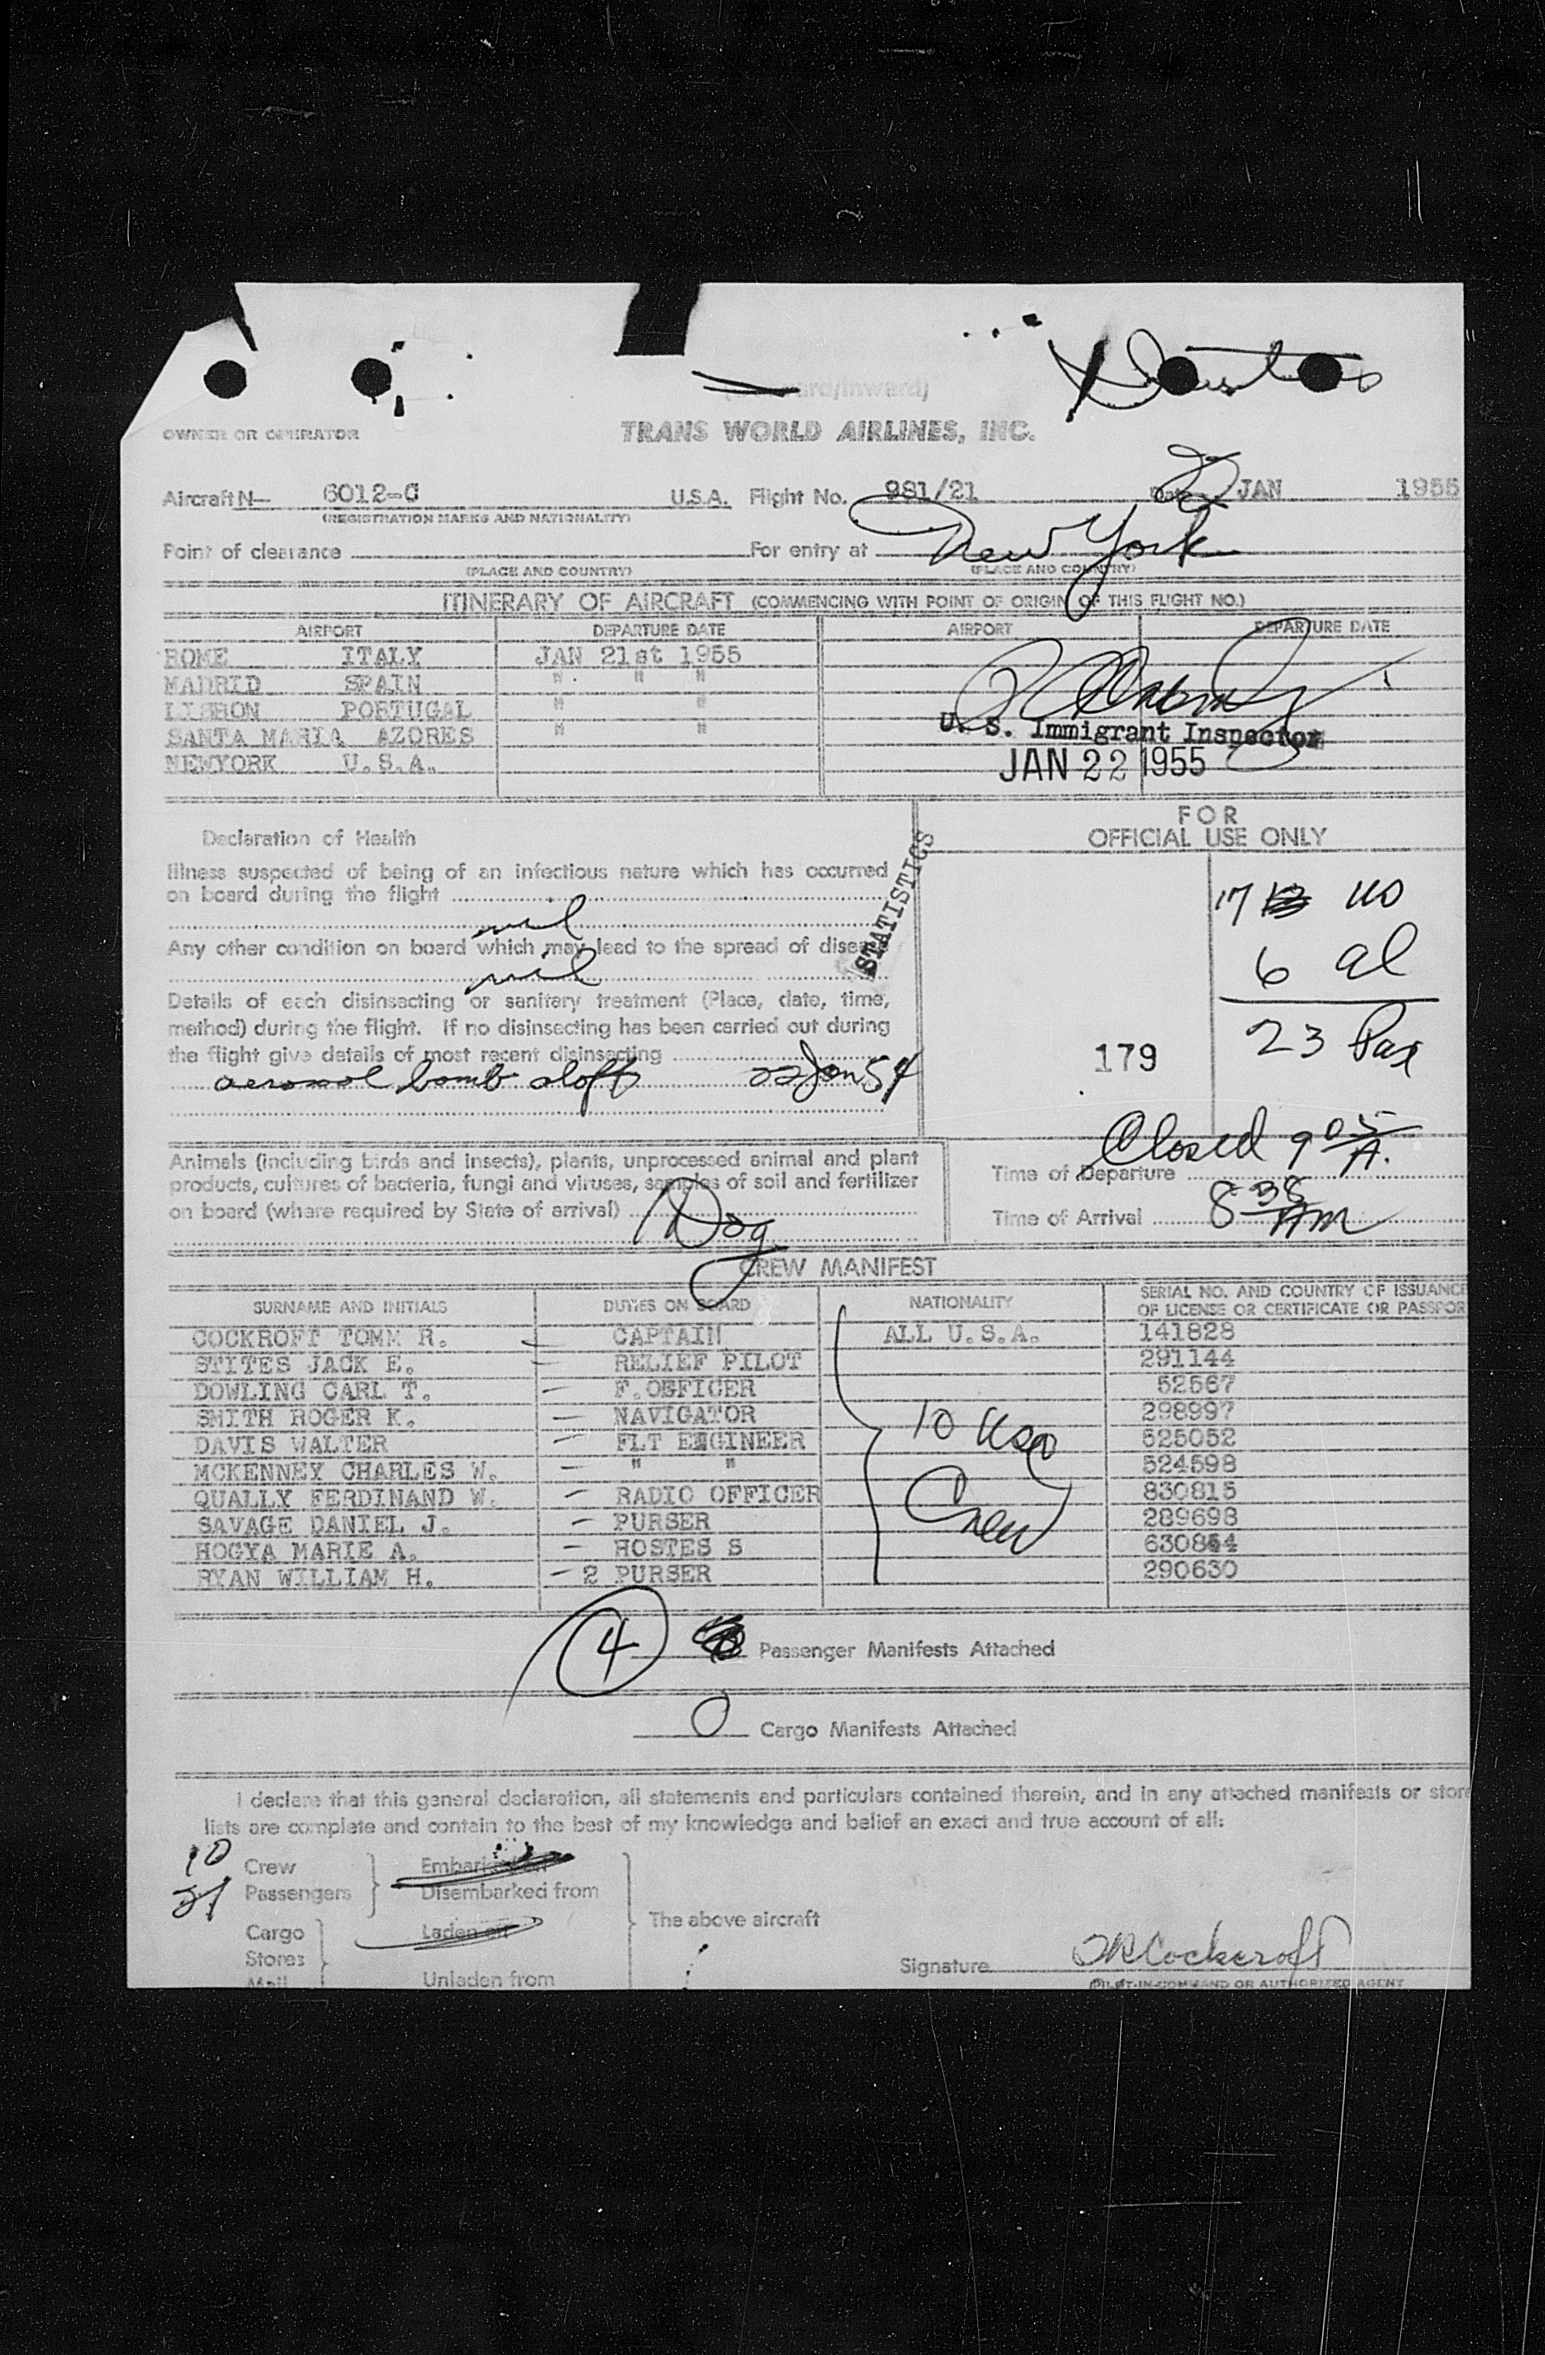 ard/Inward)
OWNER OR OPERATOR
TRANS WORLD AIRLINES, INC.
Aircraft N— 6012-C U.S.A. Flight No. 981/21 Date 22 JAN 1955
(REGISTRATION MARKS AND NATIONALITY)
Point of clearance For entry at New York
(PLACE AND COUNTRY) (PLACE AND COUNTRY)
ITINERARY OF AIRCRAFT (COMMENCING WITH POINT OF ORIGIN OF THIS FLIGHT NO.)
AIRPORT DEPARTURE DATE AIRPORT DEPARTURE DATE
ROME ITALY JAN 21st 1955
MADRID SPAIN " " "
LISBON PORTUGAL " "
SANTA MARIA AZORES " "
NEWYORK U.S.A.
U. S. Immigrant Inspector
JAN 22 1955
Declaration of Health
Illness suspected of being of an infectious nature which has occurred
on board during the flight
nil
Any other condition on board which may lead to the spread of disease
nil
Details of each disinsecting or sanitary treatment (Place, date, time,
method) during the flight. If no disinsecting has been carried out during
the flight give details of most recent disinsecting
aerosol bomb aloft 22 Jan 54
STATISTICS
FOR
OFFICIAL USE ONLY
17 US
6 al
23 Pax
179
Animals (including birds and insects), plants, unprocessed animal and plant
products, cultures of bacteria, fungi and viruses, samples of soil and fertilizer
on board (where required by State of arrival)
Dog
Closed 9 05 A.
Time of Departure
Time of Arrival 8 38 AM
CREW MANIFEST
SURNAME AND INITIALS DUTIES ON BOARD NATIONALITY SERIAL NO. AND COUNTRY OF ISSUANCE
OF LICENSE OR CERTIFICATE OR PASSPOR
COCKROFT TOMM R. CAPTAIN ALL U.S.A. 141828
STITES JACK E. — RELIEF PILOT 291144
DOWLING CARL T. — F.OFFICER 52567
SMITH ROGER K. — NAVIGATOR 298997
DAVIS WALTER — FLT ENGINEER 525052
MCKENNEY CHARLES W. — " " 524598
QUALLY FERDINAND W. — RADIO OFFICER 830815
SAVAGE DANIEL J. — PURSER 289698
HOGYA MARIE A. — HOSTES S 630864
RYAN WILLIAM H. — 2 PURSER 290630
10 USA
Crew
4 Passenger Manifests Attached
0 Cargo Manifests Attached
I declare that this general declaration, all statements and particulars contained therein, and in any attached manifests or store
lists are complete and contain to the best of my knowledge and belief an exact and true account of all:
10 Crew
Passengers
Disembarked from
Cargo
Stores
Mail
Laden on
Unladen from
The above aircraft
Signature TR Cockcroft
PILOT-IN-COMMAND OR AUTHORIZED AGENT